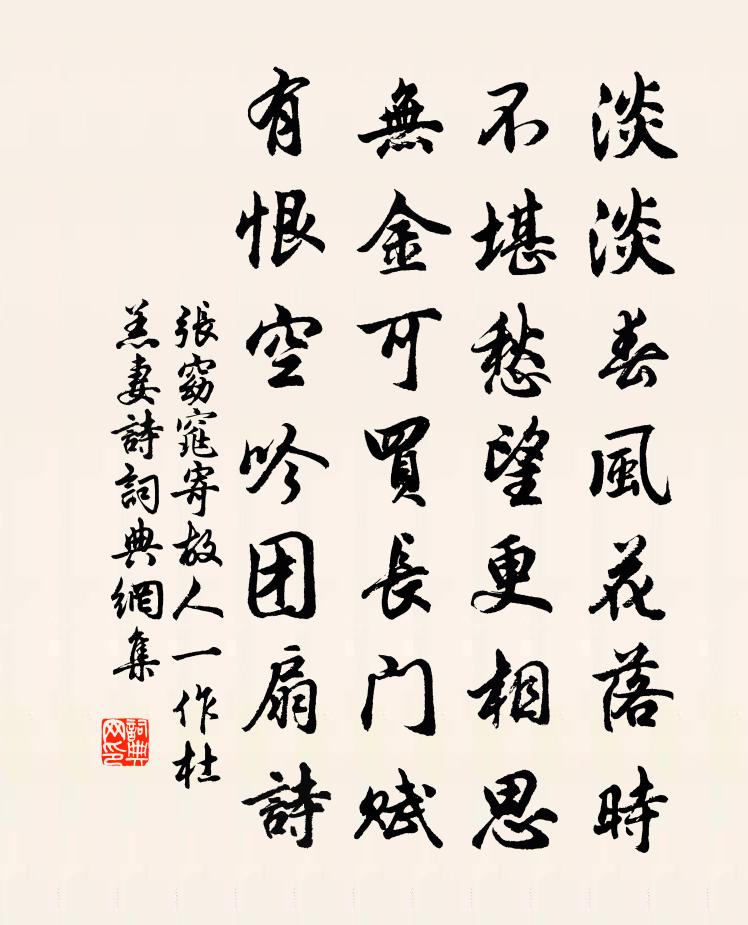 淡淡春風花落時
不堪愁望更相思
無金可買長门賦
有恨空吟团扇詩
張窈窕寄故人一作杜
羔妻詩詞典網集
詞典
网印